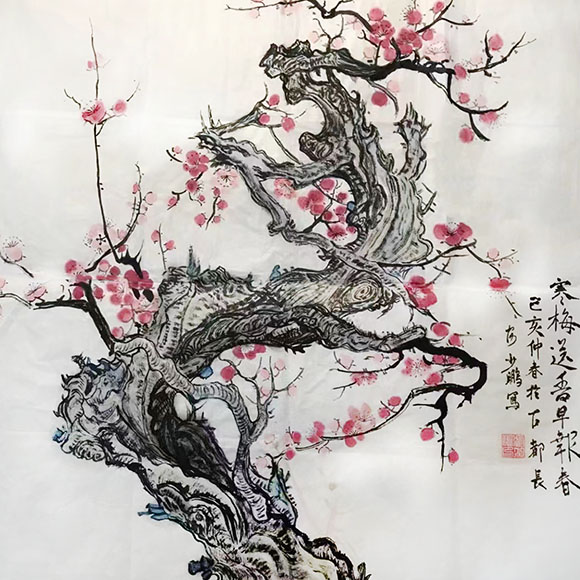 寒梅送香早報春
己亥仲春於古都長
安少鵬寫